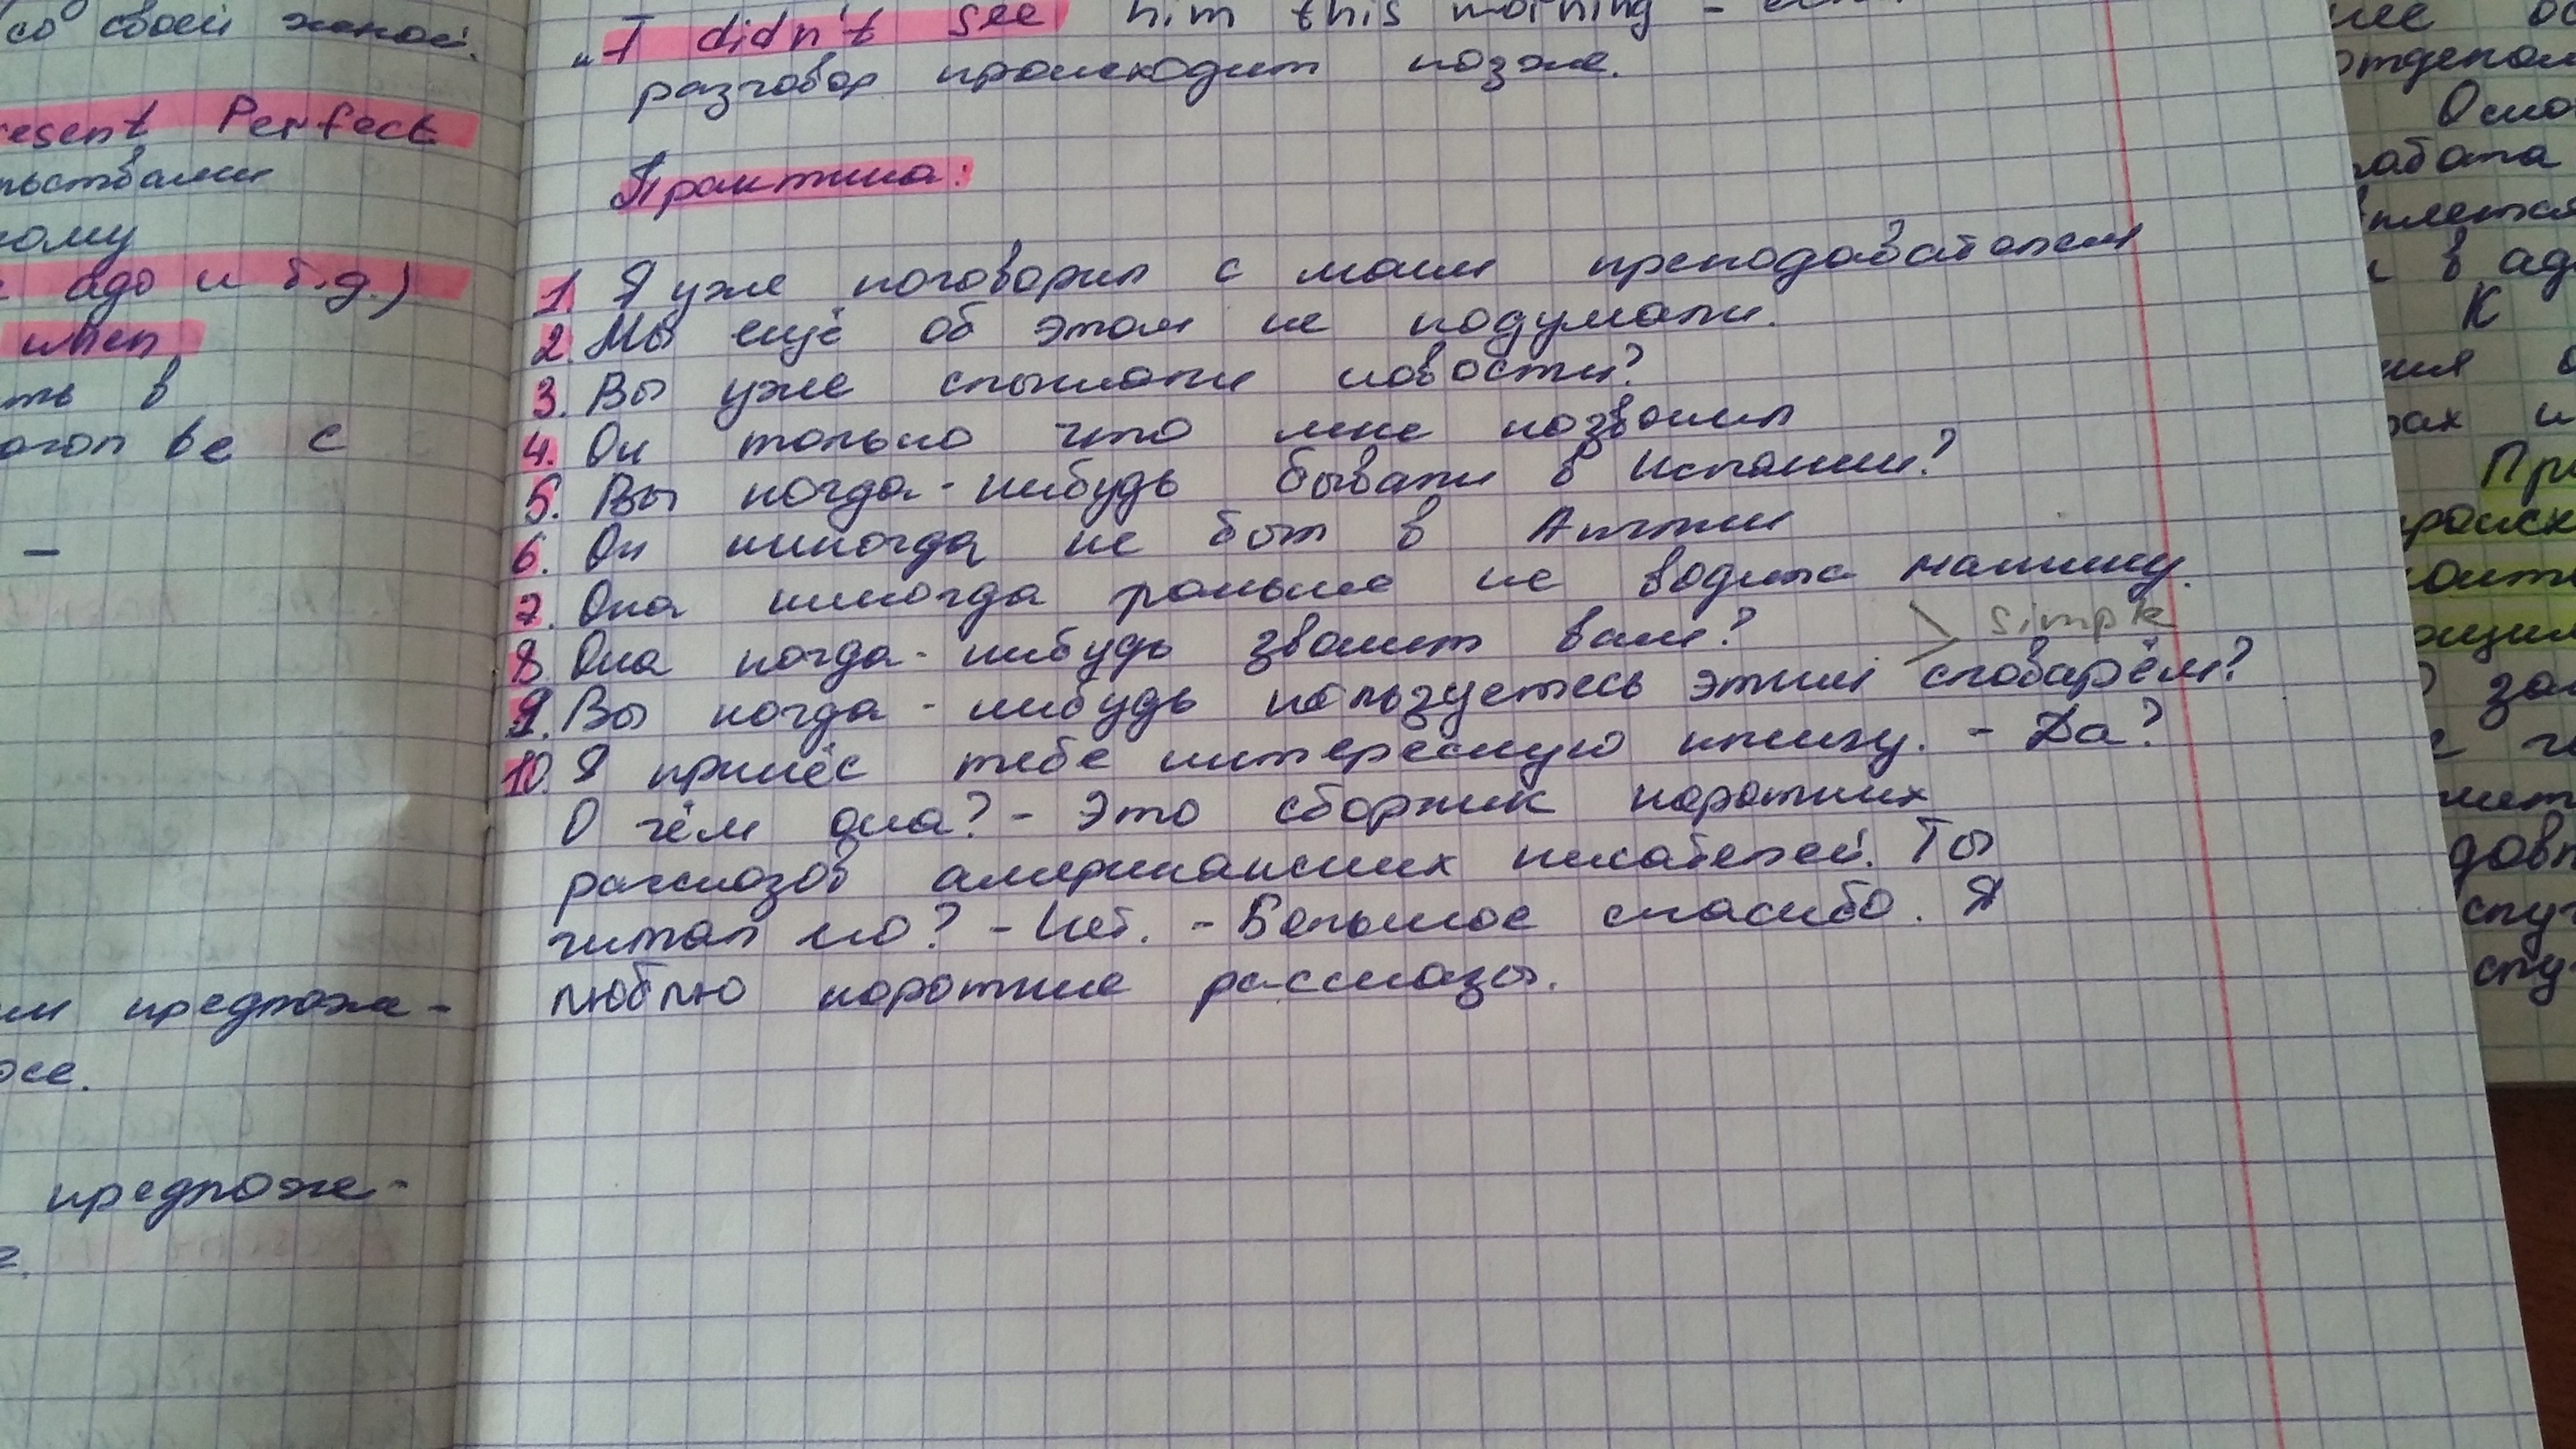 со своей женой.
resent Perfect
льствами
кому
ago и т.д.)
when
ть в
лагол be с
–
им предложе-
осе.
предложе-
"I didn't see him this morning –
разговор происходит позже.
Практика:
1. Я уже поговорил с моим преподавателем
2. Мы ещё об этом не подумали.
3. Вы уже слышали новости?
4. Он только что мне позвонил
5. Вы когда-нибудь бывали в Испании?
6. Он никогда не был в Англии
7. Она никогда раньше не водила машину.
8. Она когда-нибудь звонит вам? > simple
9. Вы когда-нибудь пользуетесь этим словарём?
10. Я принёс тебе интересную книгу. – Да?
О чём она? – Это сборник коротких
рассказов американских писателей. Ты
читал его? – Нет. – Большое спасибо. Я
люблю короткие рассказы.
отдепол
Осно
работа
в ад
К
ния
рах и
При
происх